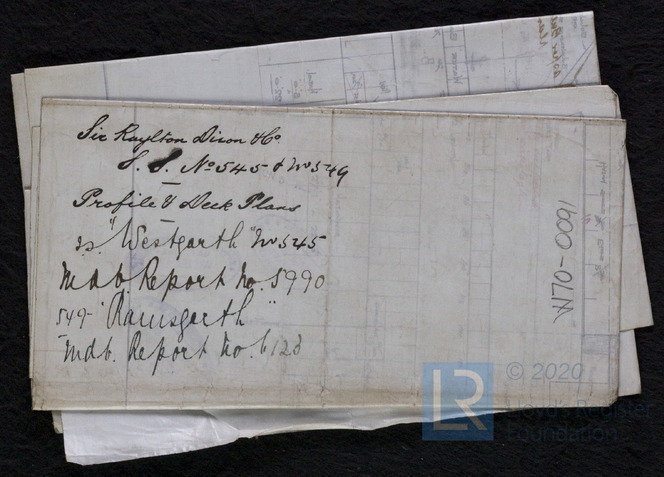 Sir Raylton Dixon & Co.
S. S. No 545 & No 549
Profile & Deck Plans
s.s. "Westgarth" No 545
Mdb Report No. 5990
549 - "Ramsgarth"
Mdb. Report No. 6123
W170-0091
© 2020
LR
Lloyd's Register
Foundation